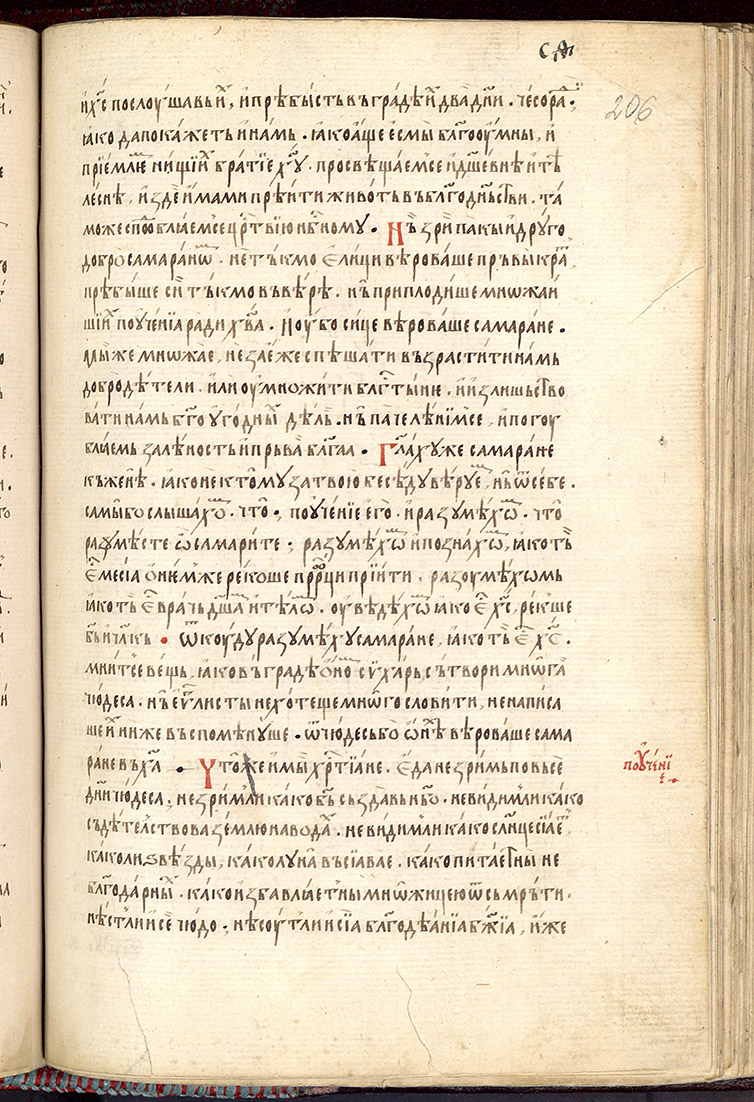 сѳ҃
206
і҃ѵ҃с послоушавы̏и҆х, и҆ прѣбы́сть въ гра́дѣ и҆х два̀ дн҃и. чесо ра́ди;
ꙗ҆ко да пока́жеть и҆ на́мь. ꙗ҆ко а҆́ще е҆смы̀ бл҃гооу́мны, и҆
прїе́млюще ни́щїих бра́тїе х҃ꙋ. просвѣща́емсе и҆ дш҃е́внѣ и҆ тѣ
ле́снѣ, и҆ зде и҆́мами прѣи́ти живо́ть въ бл҃годн҃ьстви. та
може спобли́аемсе цр҃твїю нб҃ному. Нь зри̏ па́кы и҆ дрꙋ́го
добро самара́нѡм. не ть́кмо е҆ли́ци вѣ́роваше прь́вы кра́т
прѣ́быше сїи ть́кмо въ вѣ́рѣ. нь̀ приплоди́ше мнѡжаи́
шїих поуче́нїа ра́ди хв҃а. И҆ оу҆́бо си́це вѣ́роваше самара́не.
мы́ же мнѡ́жае, не зае҆́же спѣша́ти възрасти́ти на́мь
добродѣ́тели. и҆ли оу҆мно́жити бл҃гты́ню. и҆ и҆зли́шьство
вати на́мь б҃гоуго́дных дѣль. нь̀ па́че лѣни́мсе, и҆ погоу
бли́аемь за лѣ́ность и҆ прь́ваа бл҃гаа. Гл҃а́хꙋ же самара́не
къ женѣ̀. ꙗ҆ко не к томꙋ̀ за твою̀ бесѣ́дꙋ вѣ́рꙋем, нь̀ ѿ се́бе.
са́мы бо слы́шахѡм. что̀; поуче́нїе е҆го̀. и҆ разꙋмѣ́хѡм. что̀
разꙋмѣ́сте ѽ самари́те; разꙋмѣ́хѡм и҆ позна́хѡм, ꙗ҆ко тъ̀
е҆с месі́а о҆ нѥ́мже реко́ше прⷪ҇рци прїити. разоумѣ́хѡмь
ꙗ҆ко тъ̀ е҆с вра́чь дш҃ам и҆ тѣлѡ́м. оу҆вѣ́дѣхѡм ꙗ҆ко е҆с х҃с, ре́кше
б҃ь и҆ чл҃кь. ѿкоу́дꙋ разꙋмѣ́хꙋ самара́не, ꙗ҆ко тъ̀ е҆с х҃с.
мни́тсе ве́щь, ꙗ҆ко въ гра́дѣ о҆́нѡм сꙋха́рь сътвори̏ мнѡ́га
чю́деса. нь̀ е҆ѵⷢ҇ли́сты не хо́теще мнѡ́го слови́ти, не написа
ше и҆х ниже въспомѣ́нꙋше. ѿ чю́десь бо ѡ҆́нѣх вѣ́роваше сама
ра́не въ х҃а. Что́ же и҆ мы̀ хр҃тїа́не. е҆да̀ не зри́мь по въсе
дн҃и чю́деса; не зри́м ли ка́ко б҃ь създа́вь нб҃о. не ви́дим ли ка́ко
съдѣтелствова зе́млю на вода́х. не ви́дим ли ка́ко сл҃нце сїа́ет,
ка́ко ли ѕвѣ́зды, ка́ко луна̀ въсїа́вле. ка́ко пита́ет ны̀ не
бл҃года́рных. ка́ко и҆збавли́ает ны̀ мнѡ́жицею ѿ съмрь́ти.
нѣ́ст ли и҆ се̏ чю́до; нѣ́соут ли и҆ сїа̀ бл҃годѣа́нїа б҃жїа, и҆́же
поуче́нїе